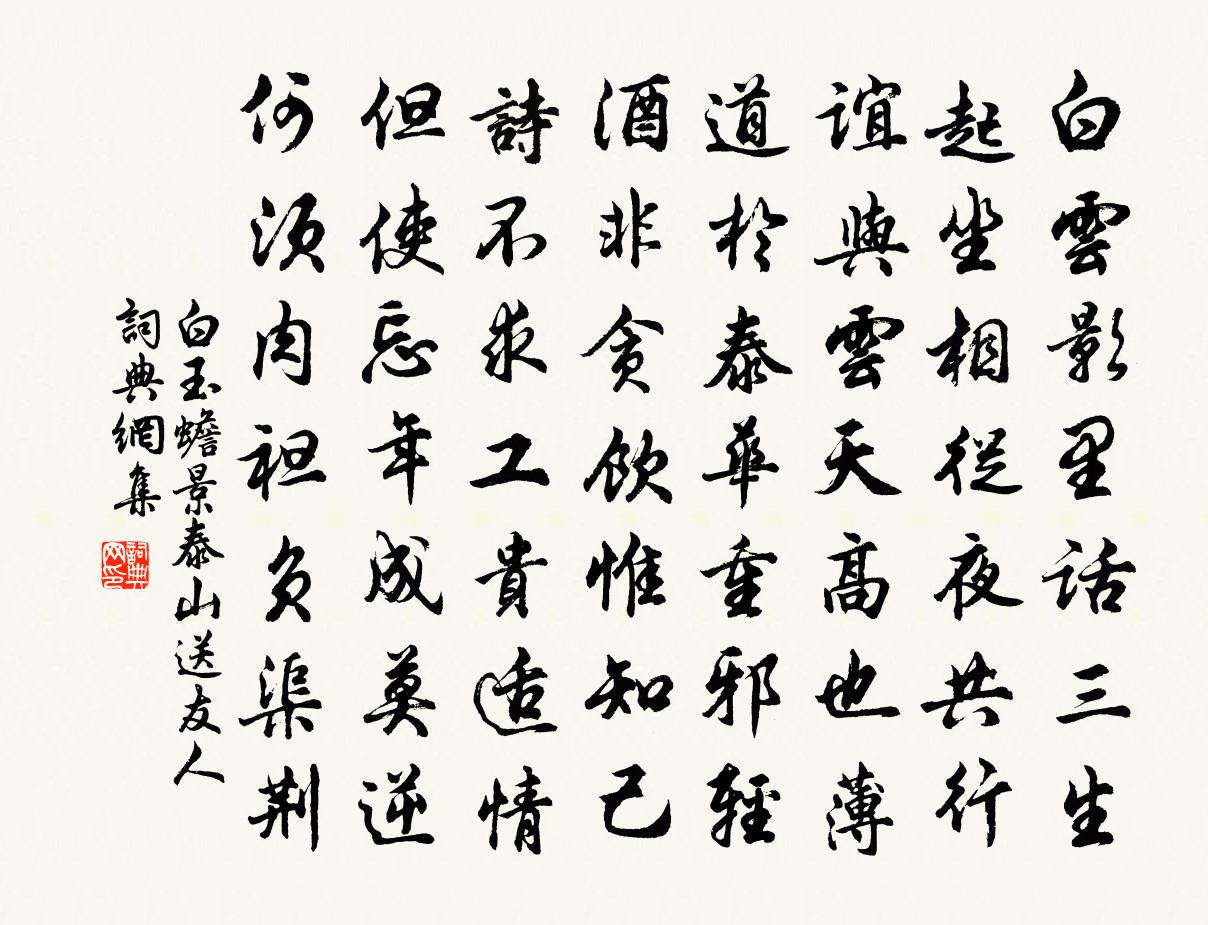 白雲影里話三生
起坐相從夜共行
誼與雲天高也薄
道於泰華重邪輕
酒非貪飲惟知己
詩不求工貴适情
但使忘年成莫逆
何須肉袒負渠荆
白玉蟾景泰山送友人
詞典網集
詞典网印